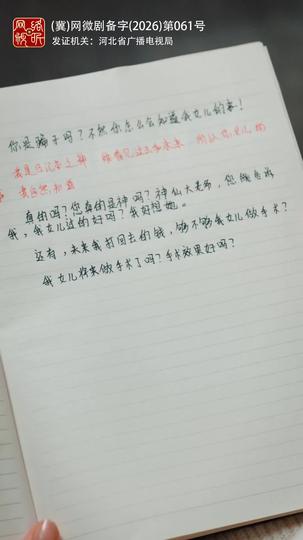 网络视听
(冀)网微剧备字(2026)第061号
发证机关：河北省广播电视局
你是骗子吗?不然你怎么会知道我女儿的事!
我是日记本之神 能看见过去和未来 所以你女儿的
事我当然知道
真的吗?您真的是神吗?神仙大老爷，您能告诉
我，我女儿过的好吗?我好想她。
还有，未来我打回去的钱，够不够我女儿做手术?
我女儿将来做手术了吗?手术效果好吗?